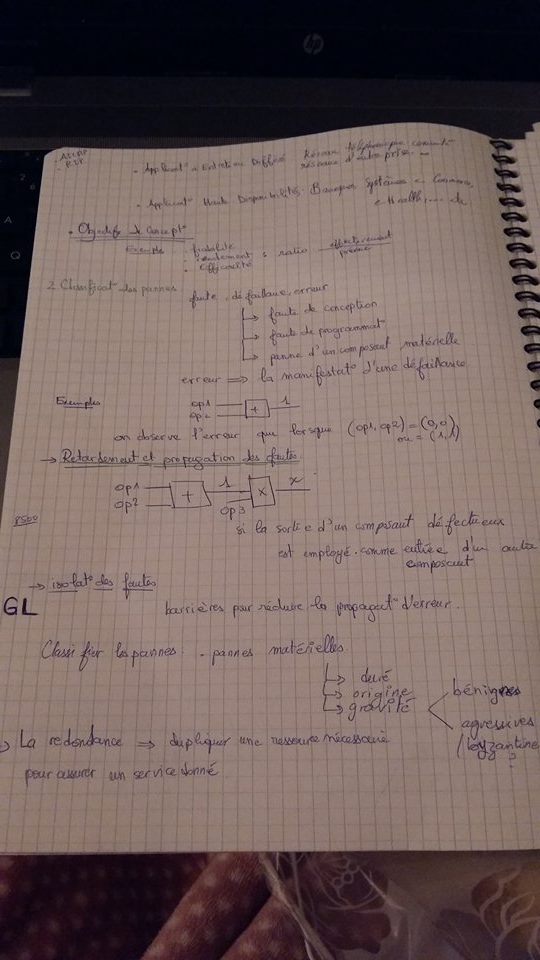 hp
• Applicat° à Entretien Différé Réseau téléphonique
réseaux d'entreprise...
• Applicat° Haute Disponibilités: Banques, Systèmes e-Commerce,
e-Health, ...
• Objectifs de concept°
Exemple - fiabilité
- rendement : ratio effectivement
- Efficacité
2. Classificat° des pannes
faute, défaillance, erreur
↳ faute de conception
↳ faute de programmat°
↳ panne d'un composant matérielle
erreur ⇒ la manifestat° d'une défaillance
Exemples op1 + 1
op2
on observe l'erreur que lorsque (op1, op2) = (0,0)
ou = (1,1)
→ Retardement et propagation des fautes
op1 + 1 × x
op2 op3
8500
si la sortie d'un composant défectueux
est employé comme entrée d'un autre
composant
→ isolat° des fautes
GL
barrières pour réduire la propagat° d'erreur.
Classifier les pannes: - pannes matérielles
↳ duré
↳ origine
↳ gravité
bénignes
agressives
(byzantine ?
→ La redondance ⇒ dupliquer une ressource nécessaire
pour assurer un service donné